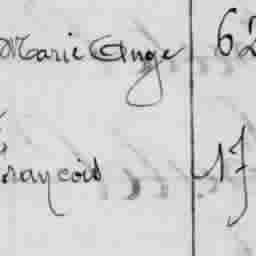 Marie Ange 62
François 17